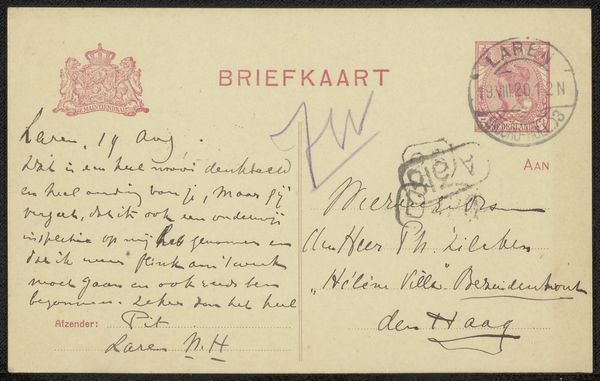 BRIEFKAART
JE MAINTIENDRAI
LAREN
19.VIII.20.1-2N
NEDERLAND
AAN
Laren, 19 Aug.
Dat is een heel mooi denkbeeld
en heel aardig van je, maar gij
vergeet, dat ik ook een onderwijs
inspectie op mij heb genomen en
dat ik weer flink aan 't werk
moet gaan en ook reeds ben
begonnen. Zeker dan het heel
Afzender: Pit
Laren N.H
den Heer Ph. Zilcken
"Hélène Villa" Bezuidenhout
den Haag